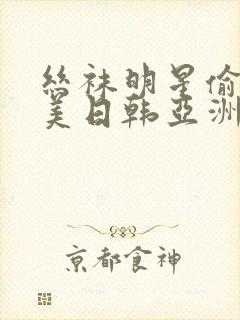 丝袜明星偷
美日韩亚洲
京都食神